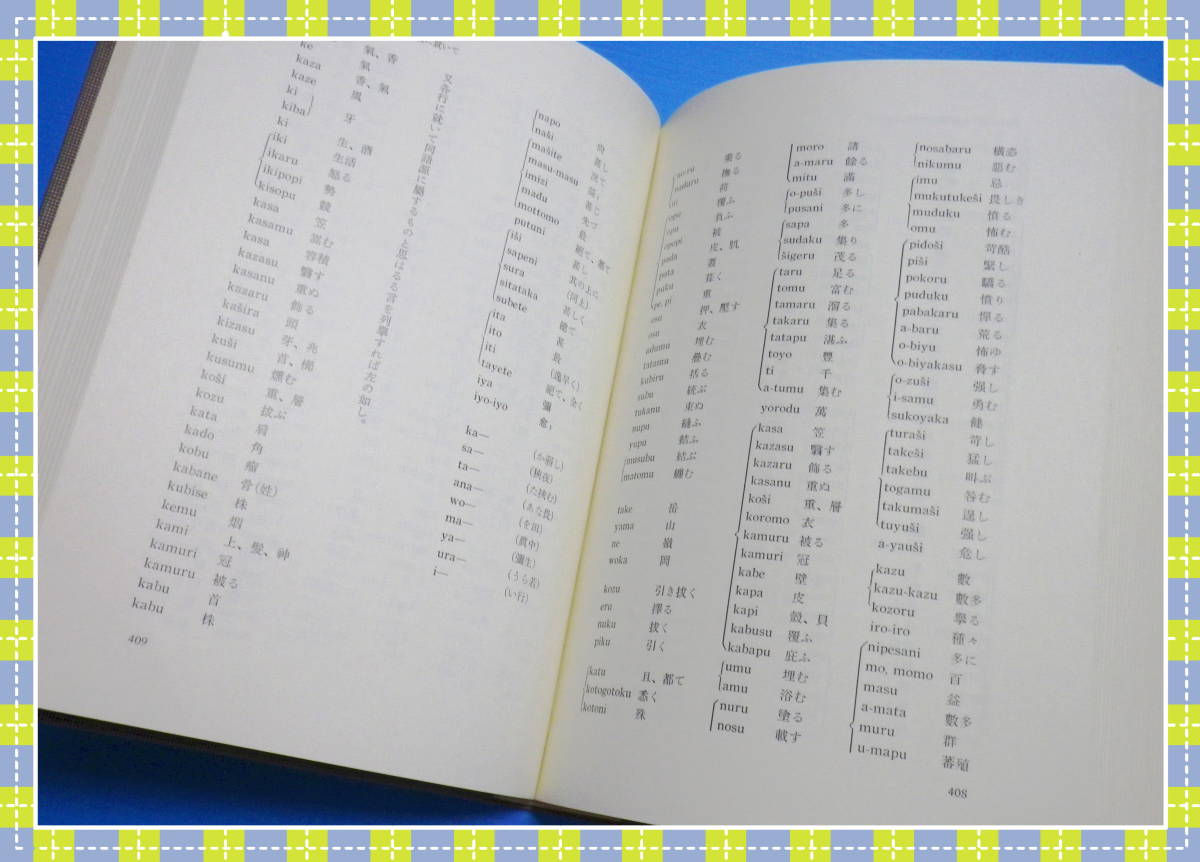 nosabaru 橫恣
nikumu 惡む
imu 忌
mukutukeši 畏しき
muduku 憤る
omu 怖む
pidoši 苛酷
piši 緊し
pokoru 驕る
puduku 憤り
pabakaru 憚る
a-baru 荒る
o-biyu 怖ゆ
o-biyakasu 脅す
o-zuši 强し
i-samu 勇む
sukoyaka 健
turaši 苛し
takeši 猛し
takebu 叫ぶ
togamu 咎む
takumaši 逞し
tuyuši 强し
a-yauši 危し
kazu 數
kazu-kazu 數多
kozoru 擧る
iro-iro 種々
nipesani 多に
mo, momo 百
masu 益
a-mata 數多
muru 群
u-mapu 蕃殖
moro 諸
a-maru 餘る
mitu 滿
o-puši 多し
pusani 多に
sapa 多
sudaku 集り
šigeru 茂る
taru 足る
tomu 富む
tamaru 溜る
takaru 集る
tatapu 湛ふ
toyo 豊
ti 千
a-tumu 集む
yorodu 萬
kasa 笠
kazasu 翳す
kazaru 飾る
kasanu 重ぬ
koši 重、層
koromo 衣
kamuru 被る
kamuri 冠
kabe 壁
kapa 皮
kapi 殼、貝
kabusu 覆ふ
kabapu 庇ふ
umu 埋む
amu 浴む
nuru 塗る
nosu 載す
noru 乗る
naduru 撫る
ni 荷
覆ふ
負ふ
被
pada 皮、肌
pata 蓋
puku 葺く
pe, pi 重
osu 押、壓す
衣
埋む
tatamu 疊む
kubiru 括る
subu 統ぶ
tukanu 束ぬ
nupu 縫ふ
yupu 結ふ
musubu 結ぶ
matomu 纒む
take 岳
yama 山
ne 嶺
woka 岡
kozu 引き拔く
eru 擇る
nuku 拔く
piku 引く
katu 且、都て
kotogotoku 悉く
kotoni 殊
408
napo 尙
naši 甚し
mašite
masu-masu
imizi
madu 先づ
mottomo 最
putuni
iši
sapeni 其の上に
sura (同上)
sitataka 甚しく
subete 總て
ita 甚
ito 最
iti (逸早く)
tayete 絕て、全く
iya 彌
iyo-iyo 愈〻
ka— (か弱し)
sa— (狹夜)
ta— (た挟む)
ana— (あな畏)
wo— (を田)
ma— (眞中)
ya— (彌生)
ura— (うら若)
i— (い行)
又各行に就いて同語源に屬するものと思はるる言を列擧すれば左の如し。
ke 氣、香
kaza
kaze 風
ki 牙
kiba
ki 酒
iki 生
ikaru 生活る
ikipopi 勢
kisopu 競
kasa 笠
kasamu 嵩む
kasa 容積
kazasu 翳す
kasanu 重ぬ
kazaru 飾る
kašira 頭
kizasu 芽、兆
kuši 首、櫛
kusumu 燻む
koši 重、層
kozu 拔ぶ
kata 肩
kado 角
kobu 瘤
kabane 骨(姓)
kubise 株
kemu 烟
kami 上、髮、神
kamuri 冠
kamuru 被る
kabu 首
kabu 株
409